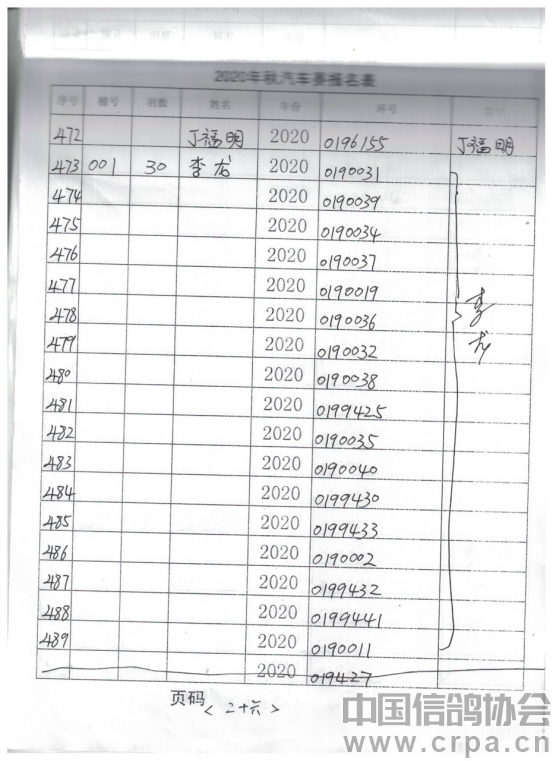 2020年秋汽车赛报名表
序号 棚号 羽数 姓名 年份 环号
472 丁福明 2020 0196155 丁福明
473 001 30 李龙 2020 0190031
474 2020 0190039
475 2020 0190034
476 2020 0190037
477 2020 0190019
478 2020 0190036 李龙
479 2020 0190032
480 2020 0190038
481 2020 0199425
482 2020 0190035
483 2020 0190040
484 2020 0199430
485 2020 0199433
486 2020 0190002
487 2020 0199432
488 2020 0199441
489 2020 0190011
2020 019427
页码 <二十六>
中国信鸽协会
www.crpa.cn